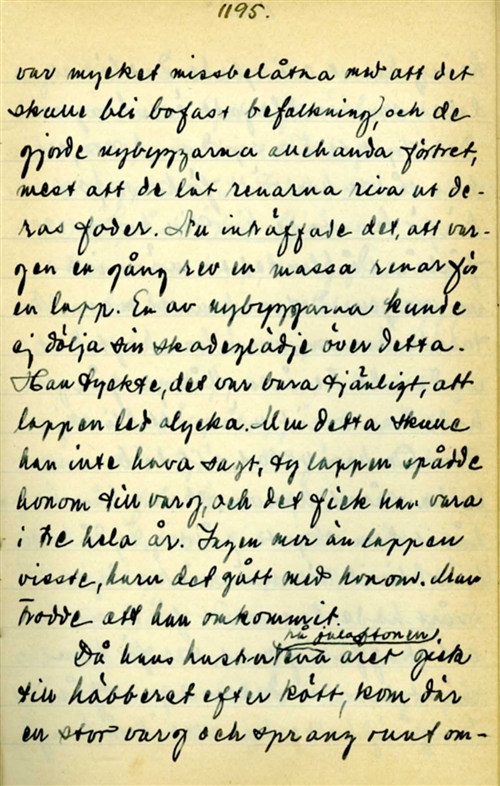 1195.
var mycket missbelåtna med att det
skulle bli bofast befolkning, och de
gjorde nybyggarna allehanda förtret,
mest att de lät renarna riva ut de-
ras foder. Nu inträffade det, att var-
gen en gång rev en massa renar för
en lapp. En av nybyggarna kunde
ej dölja sin skadeglädje över detta.
Han tyckte, det var bara tjänligt, att
lappen led olycka. Men detta skulle
han inte hava sagt, ty lappen spådde
honom till varg, och det fick han vara
i tre hela år. Ingen mer än lappen
visste, huru det gått med honom. Man
trodde att han omkommit.
på julaftonen
Då hans hustru ena året gick
till häbberet efter kött, kom där
en stor varg och sprang runt om-